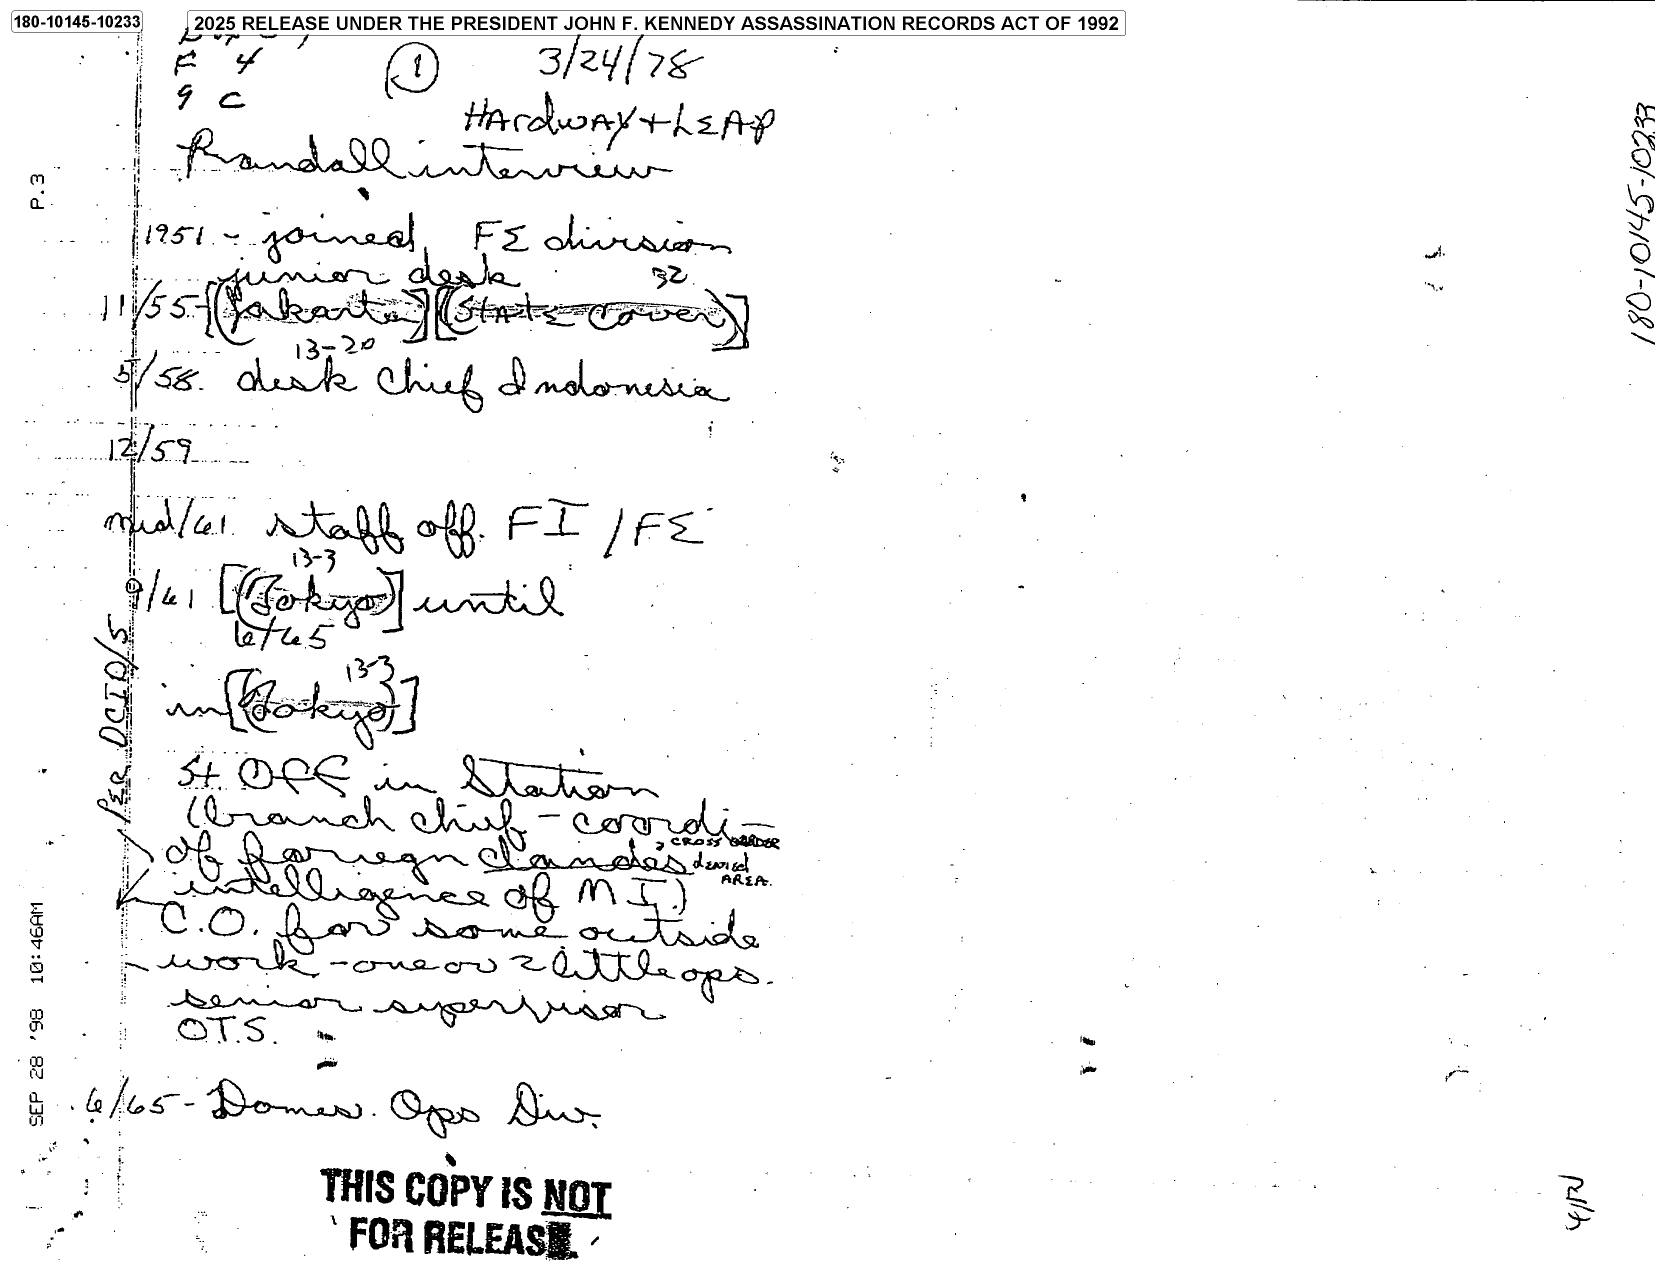 180-10145-10233
2025 RELEASE UNDER THE PRESIDENT JOHN F. KENNEDY ASSASSINATION RECORDS ACT OF 1992
F 4
9 C
1
3/24/78
HArdwAY + LEAP
Randall interview
1951 - joined FE division
junior desk
32
11/55-[(Jakarta)] [(StAtE cover)]
13-20
5/58. desk chief Indonesia
12/59
mid/61 staff off. FI / FE
13-3
9/61 [(Tokyo)] until
6/65
13-3
in [(Tokyo)]
St OFF in Station
(branch chief - coordi-
of foriegn clandes, CROSS BORDER
denied
AREA.
intelligence of M I.)
C.O. for some outside
work - one or 2 little ops.
senior supervisor
O.T.S.
6/65 - Domes. Ops Div.
THIS COPY IS NOT
FOR RELEASE.
P.3
PER DCIO/S
SEP 28 '98 10:46AM
180-10145-10233